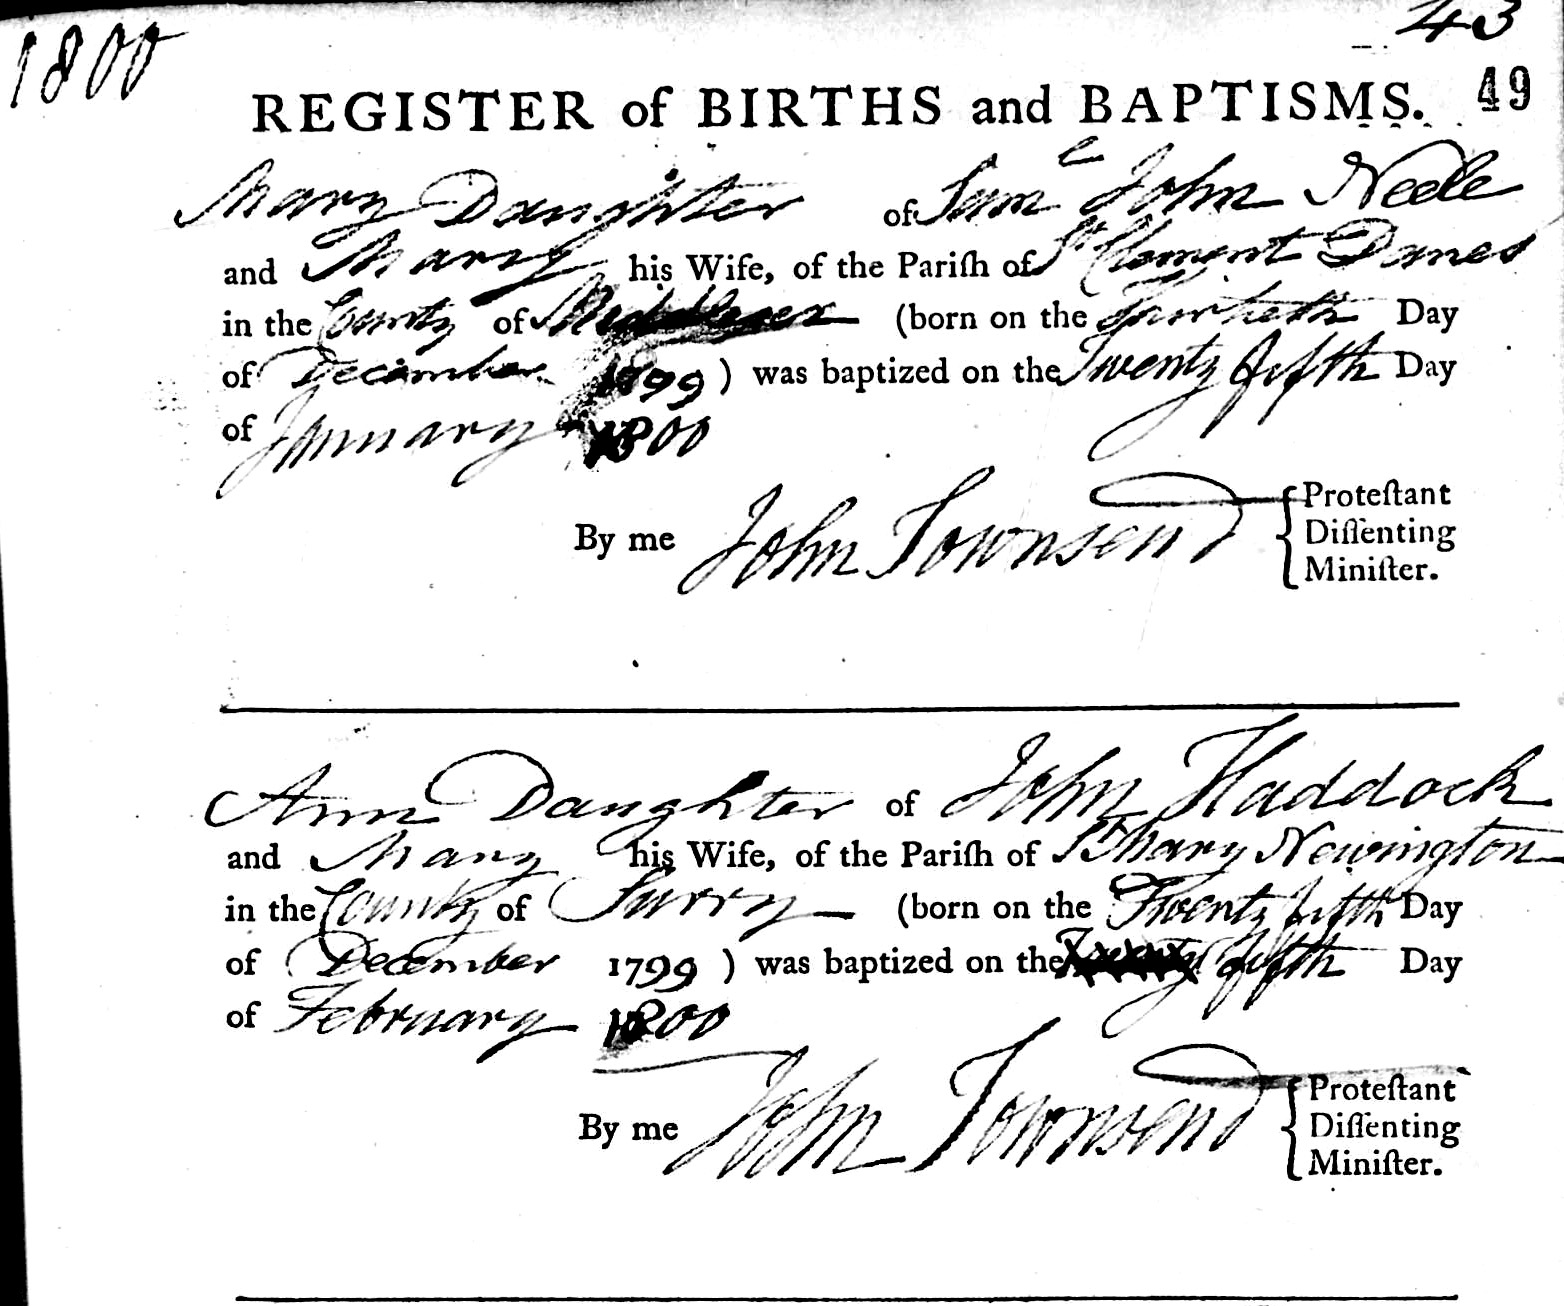 1800
43
REGISTER of BIRTHS and BAPTISMS. 49
Mary Daughter of Saml John Neele
and Mary his Wife, of the Pariſh of St Clement Danes
in the County of Middlesex (born on the Day
of December 1799) was baptized on the Twenty fifth Day
of January 1800
By me John Townsend { Proteſtant
Diſſenting
Miniſter.
Ann Daughter of John Haddock
and Mary his Wife, of the Pariſh of St Mary Newington
in the County of Surry (born on the Twenty fifth Day
of December 1799) was baptized on the Twenty fifth Day
of February 1800
By me John Townsend { Proteſtant
Diſſenting
Miniſter.